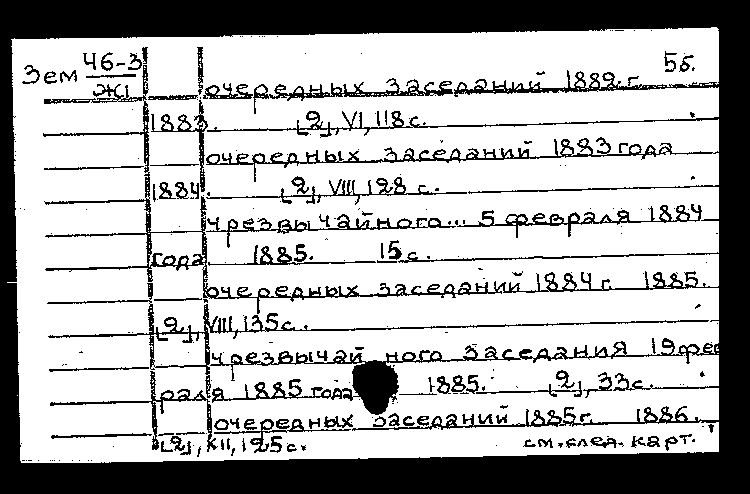 Зем 46-3 5б.
Ж1 очередных заседаний 1882 г.
1883. [2], VI, 118 с.
очередных заседаний 1883 года
1884. [2], VIII, 128 с.
чрезвычайного... 5 февраля 1884
года 1885. 15 с.
очередных заседаний 1884 г 1885.
[2], VIII, 135 с.
чрезвычайного заседания 19 фев
раля 1885 года 1885. [2], 33 с.
очередных заседаний 1885 г. 1886.
[2], XII, 125 с. см. след. карт.